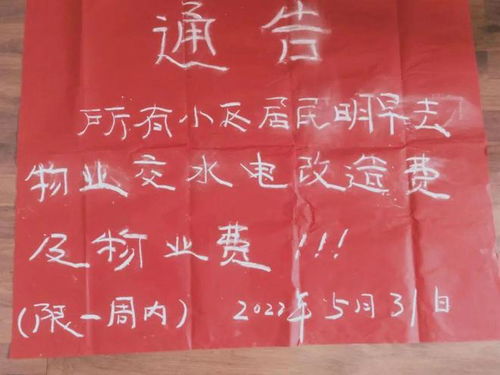 通告
所有小区居民明早去
物业交水电改造费
及物业费!!!
(限一周内) 2022年5月31日